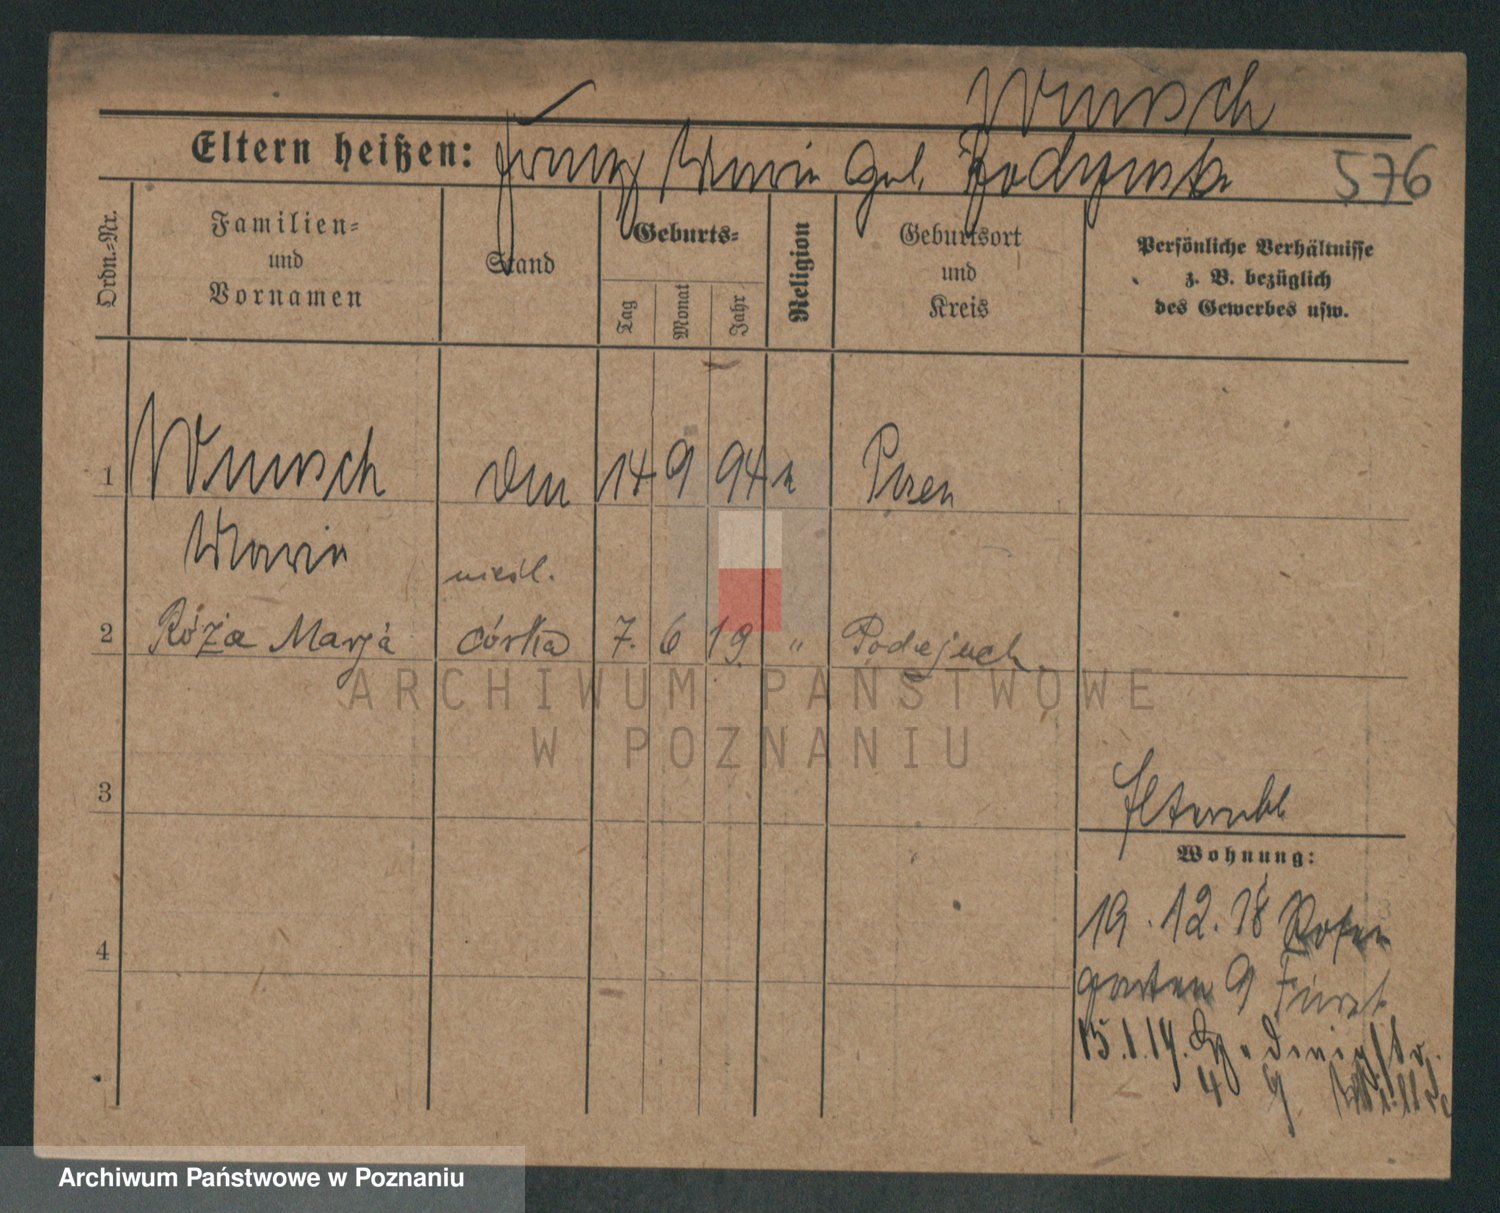 Wunsch
Eltern heißen: Franz Marie geb.
576
Ordn.-Nr.
Familien-
und
Vornamen
Stand
Geburts-
Tag
Monat
Jahr
Religion
Geburtsort
und
Kreis
Persönliche Verhältnisse
z. B. bezüglich
des Gewerbes usw.
1 Wunsch 14 9 94 k Posen
Marie
nieśl.
2 Róża Marja córka 7. 6 19. " Podejuch
ARCHIWUM PAŃSTWOWE
W POZNANIU
3
Wohnung:
19.12.18 Rosen
garten 9 Fürst
4
15.1.19.
4 9
Archiwum Państwowe w Poznaniu